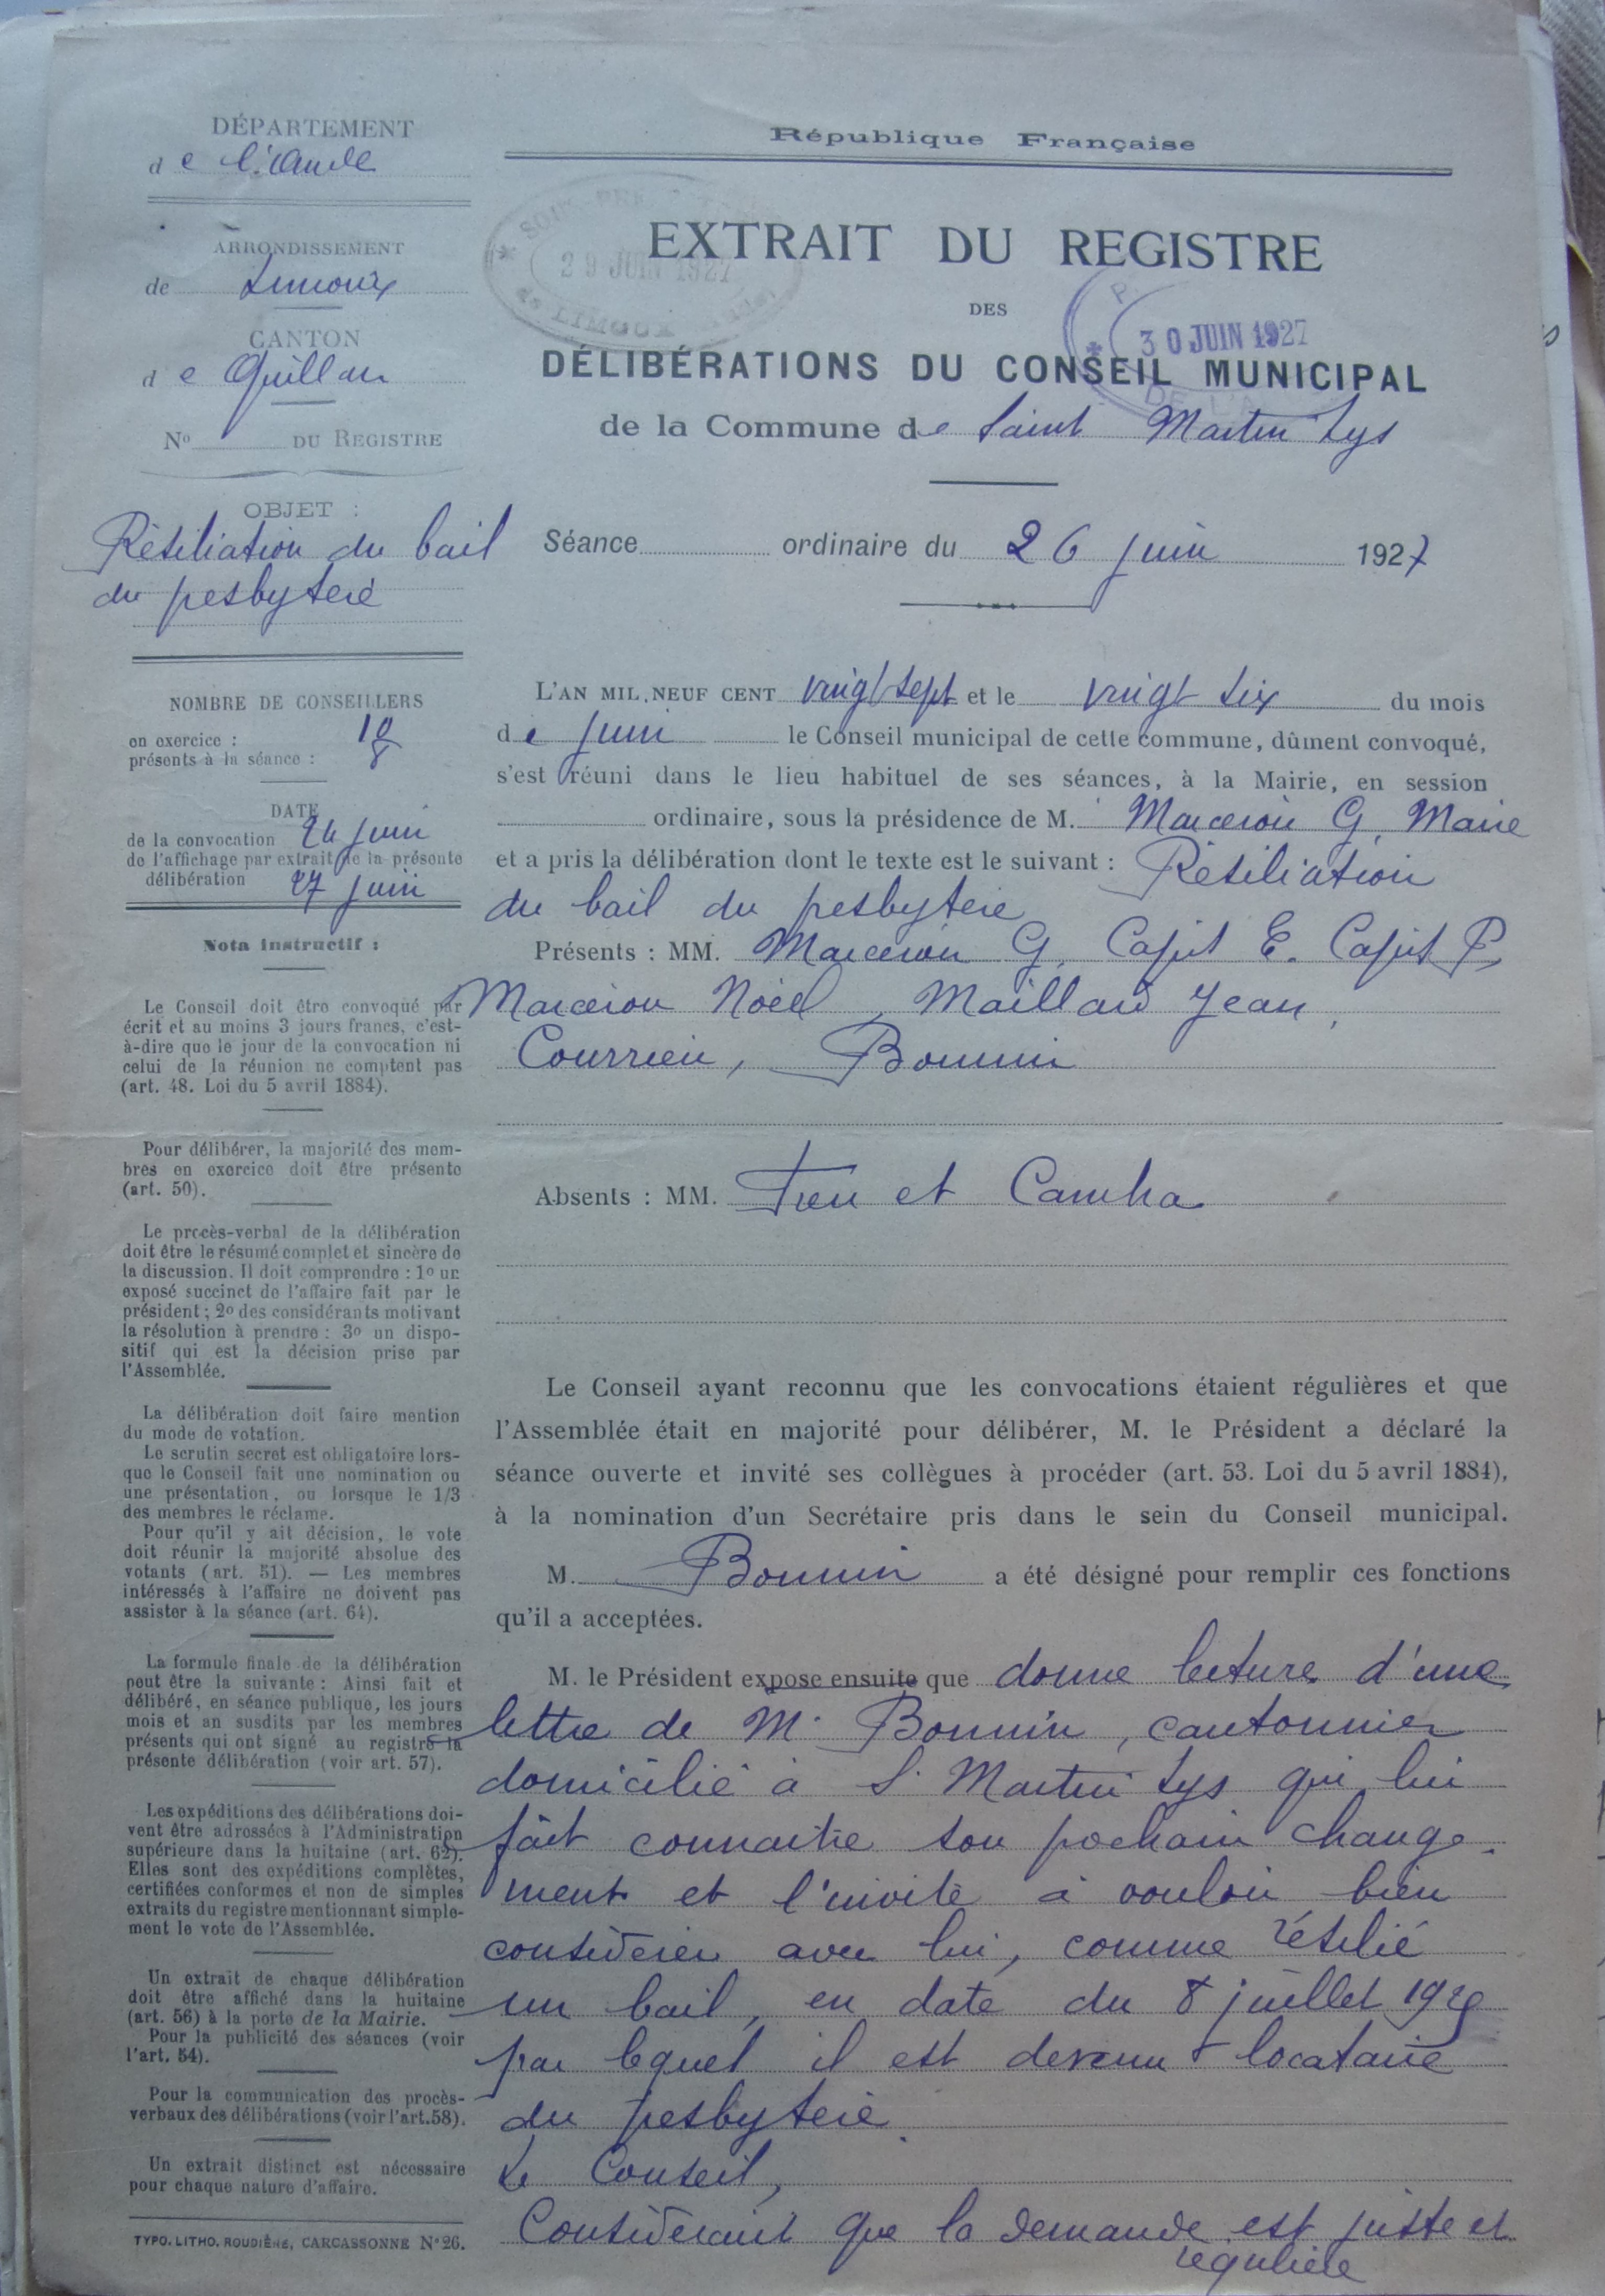 DÉPARTEMENT
de l'Aude
ARRONDISSEMENT
de Limoux
CANTON
de Quillan
No DU REGISTRE
OBJET :
Résiliation du bail
du presbytère
NOMBRE DE CONSEILLERS
en exercice : 10
présents à la séance : 8
DATE
de la convocation 24 juin
de l'affichage par extrait de la présente
délibération 27 juin
Nota instructif :
Le Conseil doit être convoqué par
écrit et au moins 3 jours francs, c'est-
à-dire que le jour de la convocation ni
celui de la réunion ne comptent pas
(art. 48. Loi du 5 avril 1884).
Pour délibérer, la majorité des mem-
bres en exercice doit être présente
(art. 50).
Le procès-verbal de la délibération
doit être le résumé complet et sincère de
la discussion. Il doit comprendre : 1o un
exposé succinct de l'affaire fait par le
président ; 2o des considérants motivant
la résolution à prendre : 3o un dispo-
sitif qui est la décision prise par
l'Assemblée.
La délibération doit faire mention
du mode de votation.
Le scrutin secret est obligatoire lors-
que le Conseil fait une nomination ou
une présentation, ou lorsque le 1/3
des membres le réclame.
Pour qu'il y ait décision, le vote
doit réunir la majorité absolue des
votants (art. 51). — Les membres
intéressés à l'affaire ne doivent pas
assister à la séance (art. 64).
La formule finale de la délibération
peut être la suivante : Ainsi fait et
délibéré, en séance publique, les jours
mois et an susdits par les membres
présents qui ont signé au registre la
présente délibération (voir art. 57).
Les expéditions des délibérations doi-
vent être adressées à l'Administration
supérieure dans la huitaine (art. 62).
Elles sont des expéditions complètes,
certifiées conformes et non de simples
extraits du registre mentionnant simple-
ment le vote de l'Assemblée.
Un extrait de chaque délibération
doit être affiché dans la huitaine
(art. 56) à la porte de la Mairie.
Pour la publicité des séances (voir
l'art. 54).
Pour la communication des procès-
verbaux des délibérations (voir l'art.58).
Un extrait distinct est nécessaire
pour chaque nature d'affaire.
TYPO. LITHO. ROUDIÈRE, CARCASSONNE No 26.
République Française
29 JUIN 1927
LIMOUX
EXTRAIT DU REGISTRE
DES
30 JUIN 1927
DÉLIBÉRATIONS DU CONSEIL MUNICIPAL
de la Commune de Saint Martin Lys
Séance ordinaire du 26 juin 1927
L'AN MIL NEUF CENT vingt sept et le vingt six du mois
de juin le Conseil municipal de cette commune, dûment convoqué,
s'est réuni dans le lieu habituel de ses séances, à la Mairie, en session
ordinaire, sous la présidence de M. Marceron G, Maire
et a pris la délibération dont le texte est le suivant : Résiliation
du bail du presbytère
Présents : MM. Marceron G, Capit E. Capit P,
Marceron Noël, Maillard Jean,
Courrieu, Bonnin
Absents : MM. et
Le Conseil ayant reconnu que les convocations étaient régulières et que
l'Assemblée était en majorité pour délibérer, M. le Président a déclaré la
séance ouverte et invité ses collègues à procéder (art. 53. Loi du 5 avril 1884),
à la nomination d'un Secrétaire pris dans le sein du Conseil municipal.
M. Bonnin a été désigné pour remplir ces fonctions
qu'il a acceptées.
M. le Président expose ensuite que donne lecture d'une
lettre de Mr Bonnin, cantonnier
domicilié à St Martin Lys qui lui
fait connaitre son pochain change-
ment et l'invite à vouloir bien
considérer avec lui, comme résilié
un bail, en date du 8 juillet 1925
par lequel il est devenu locataire
du presbytère.
Le Conseil,
Considérant que la demande est juste et
régulière